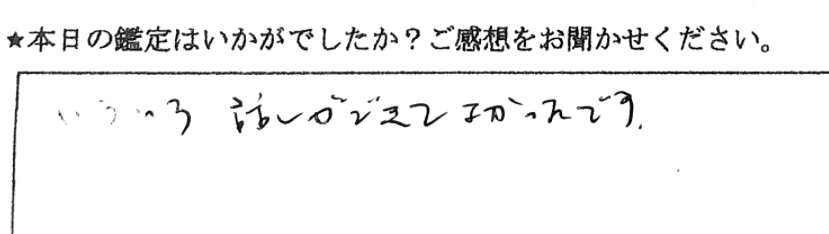 ★本日の鑑定はいかがでしたか？ご感想をお聞かせください。
いろいろ 話しができてよかったです.